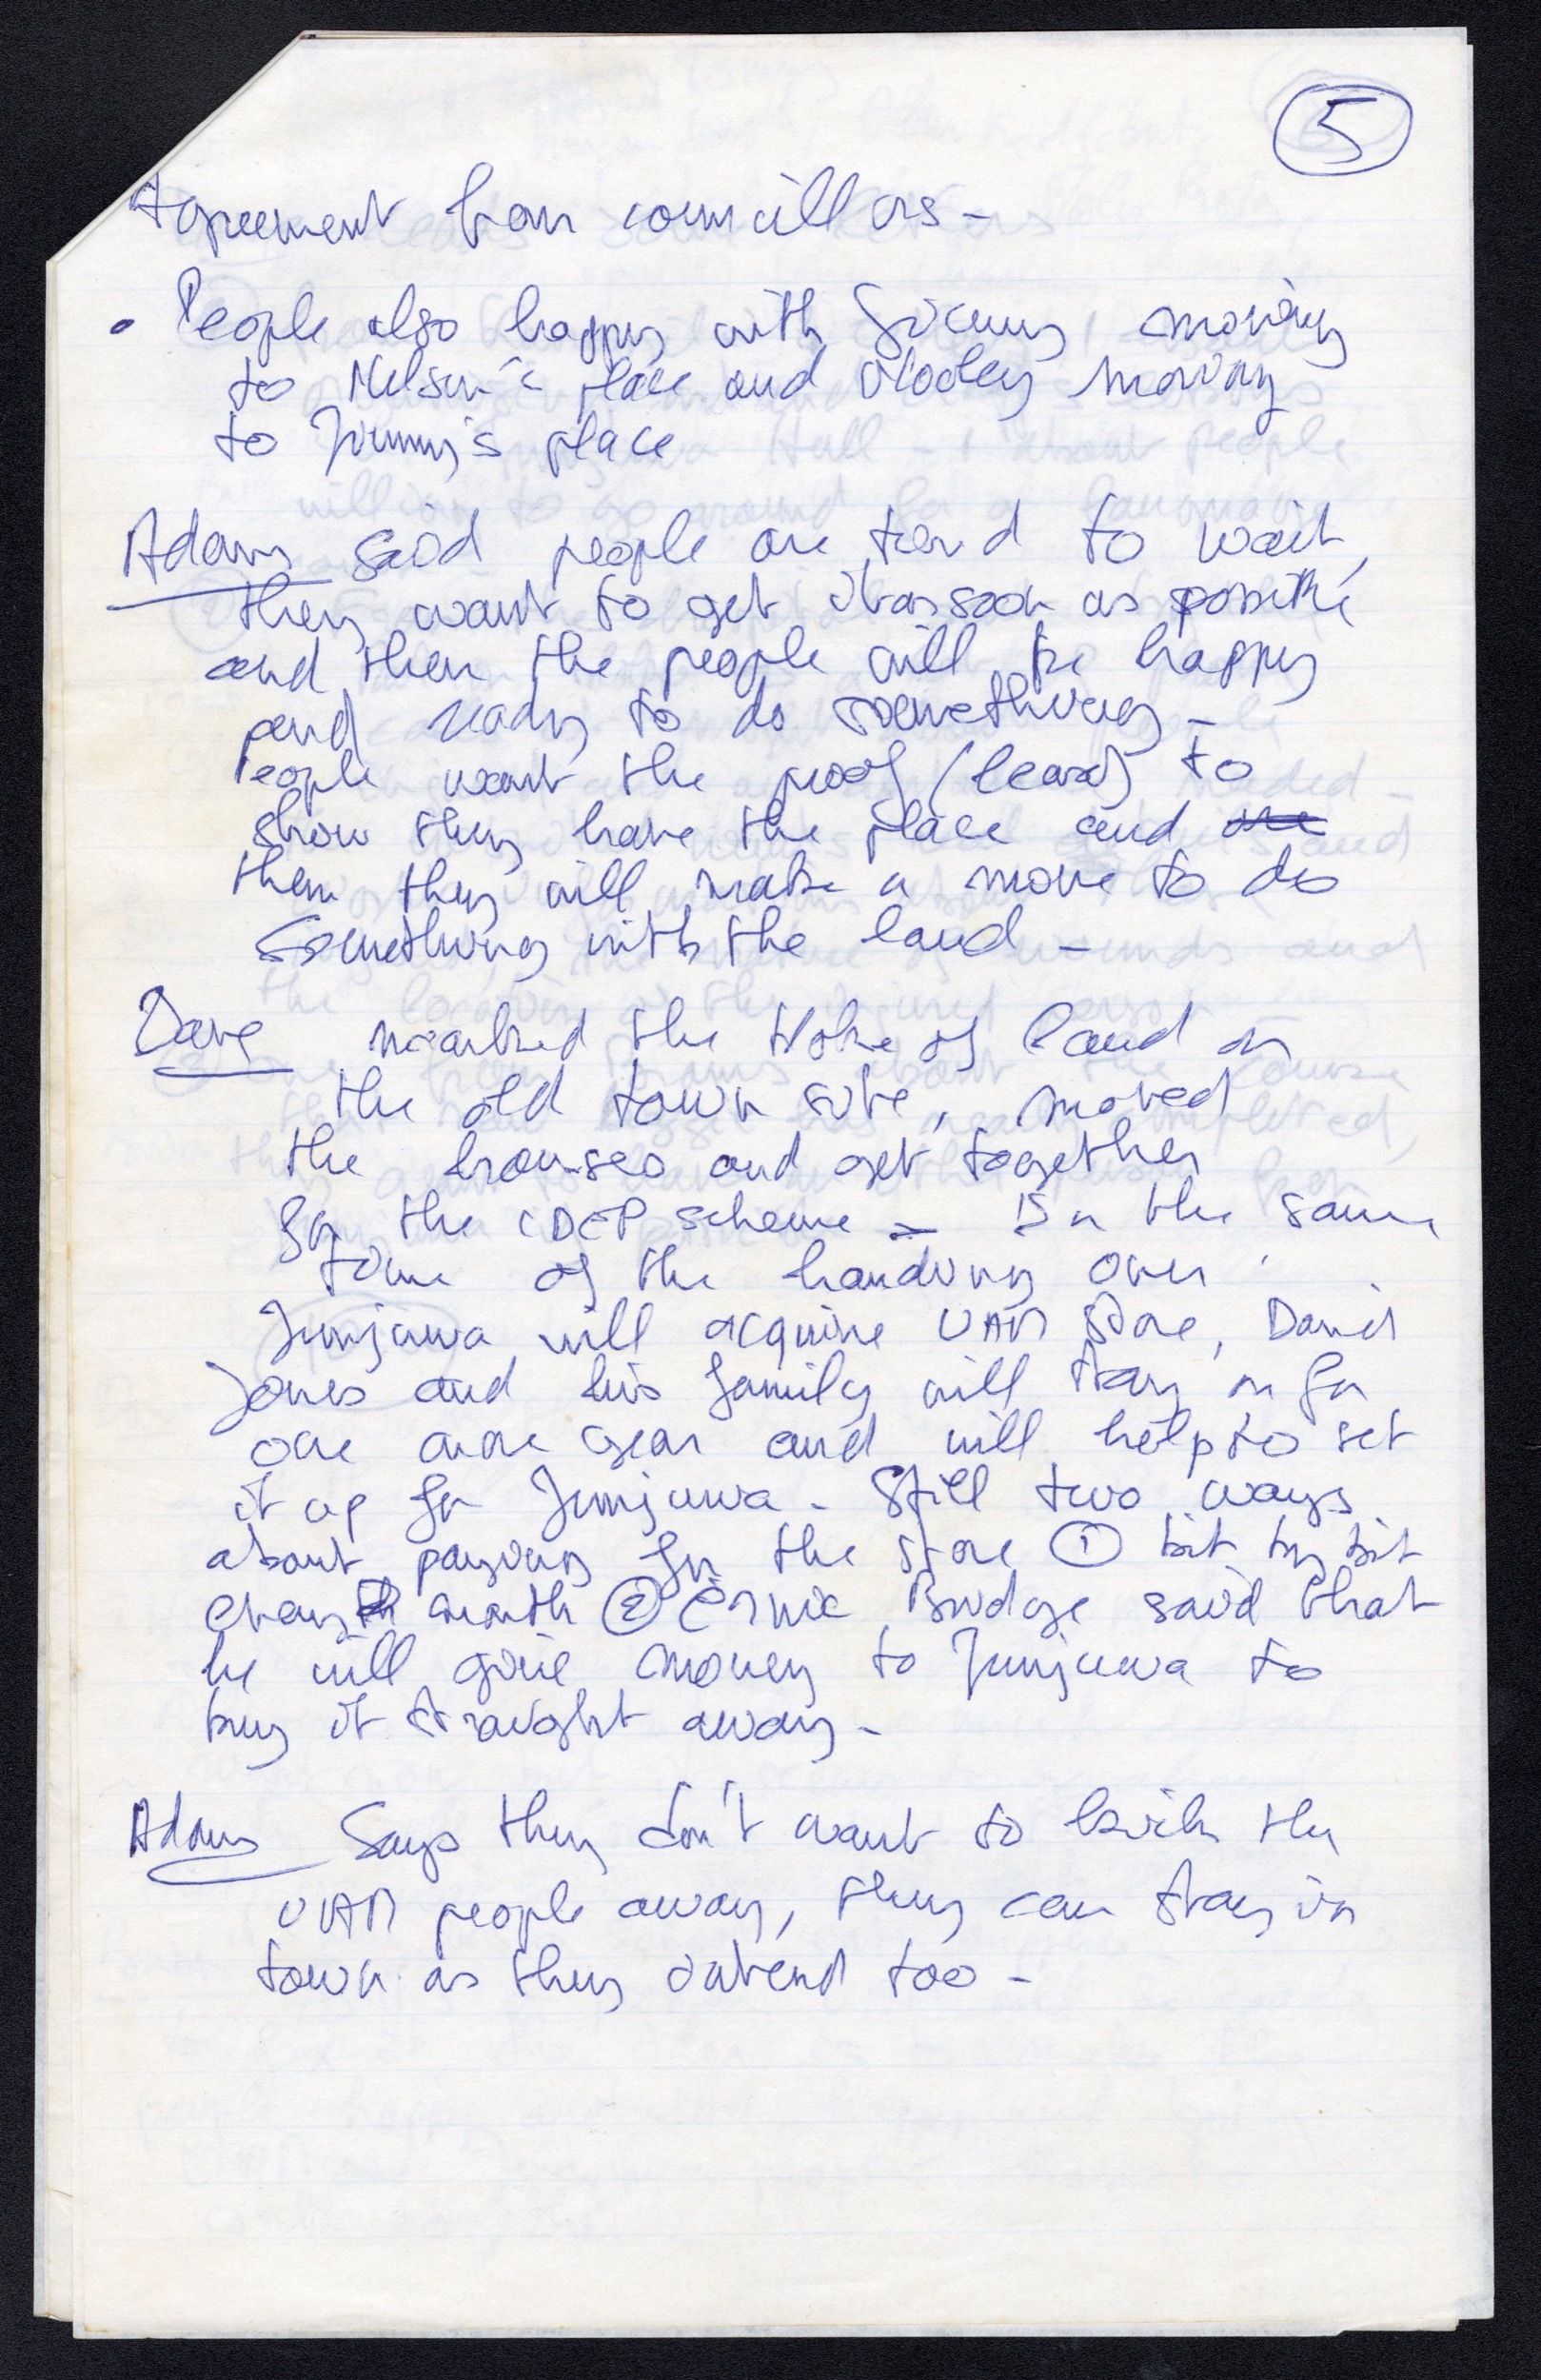 5
Agreement from councillors -
• People also happy with Jimmy moving
to Nelson's place and moving
to Jimmy's place
Adam said people are tierd to wait,
they want to get it as soon as possible
and then the people will be happy
and ready to do something -
People want the proof (lease) to
show they have the place and
then they will make a move to do
something with the land -
Dave marked the bloke of land on
the old town site, moved
the houses and get together
for the CDEP scheme - In the same
time of the handing over
Junjuwa will acquire UAM store, David
Jones and his family will stay on for
one more year and will help to set
it up for Junjuwa - Still two ways
about paying for the store ① bit by bit
every month ② Ernie Bridge said that
he will give money to Junjuwa to
buy it straight away -
Adam Says they don't want to kick the
UAM people away, they can stay in
town as they intend too -